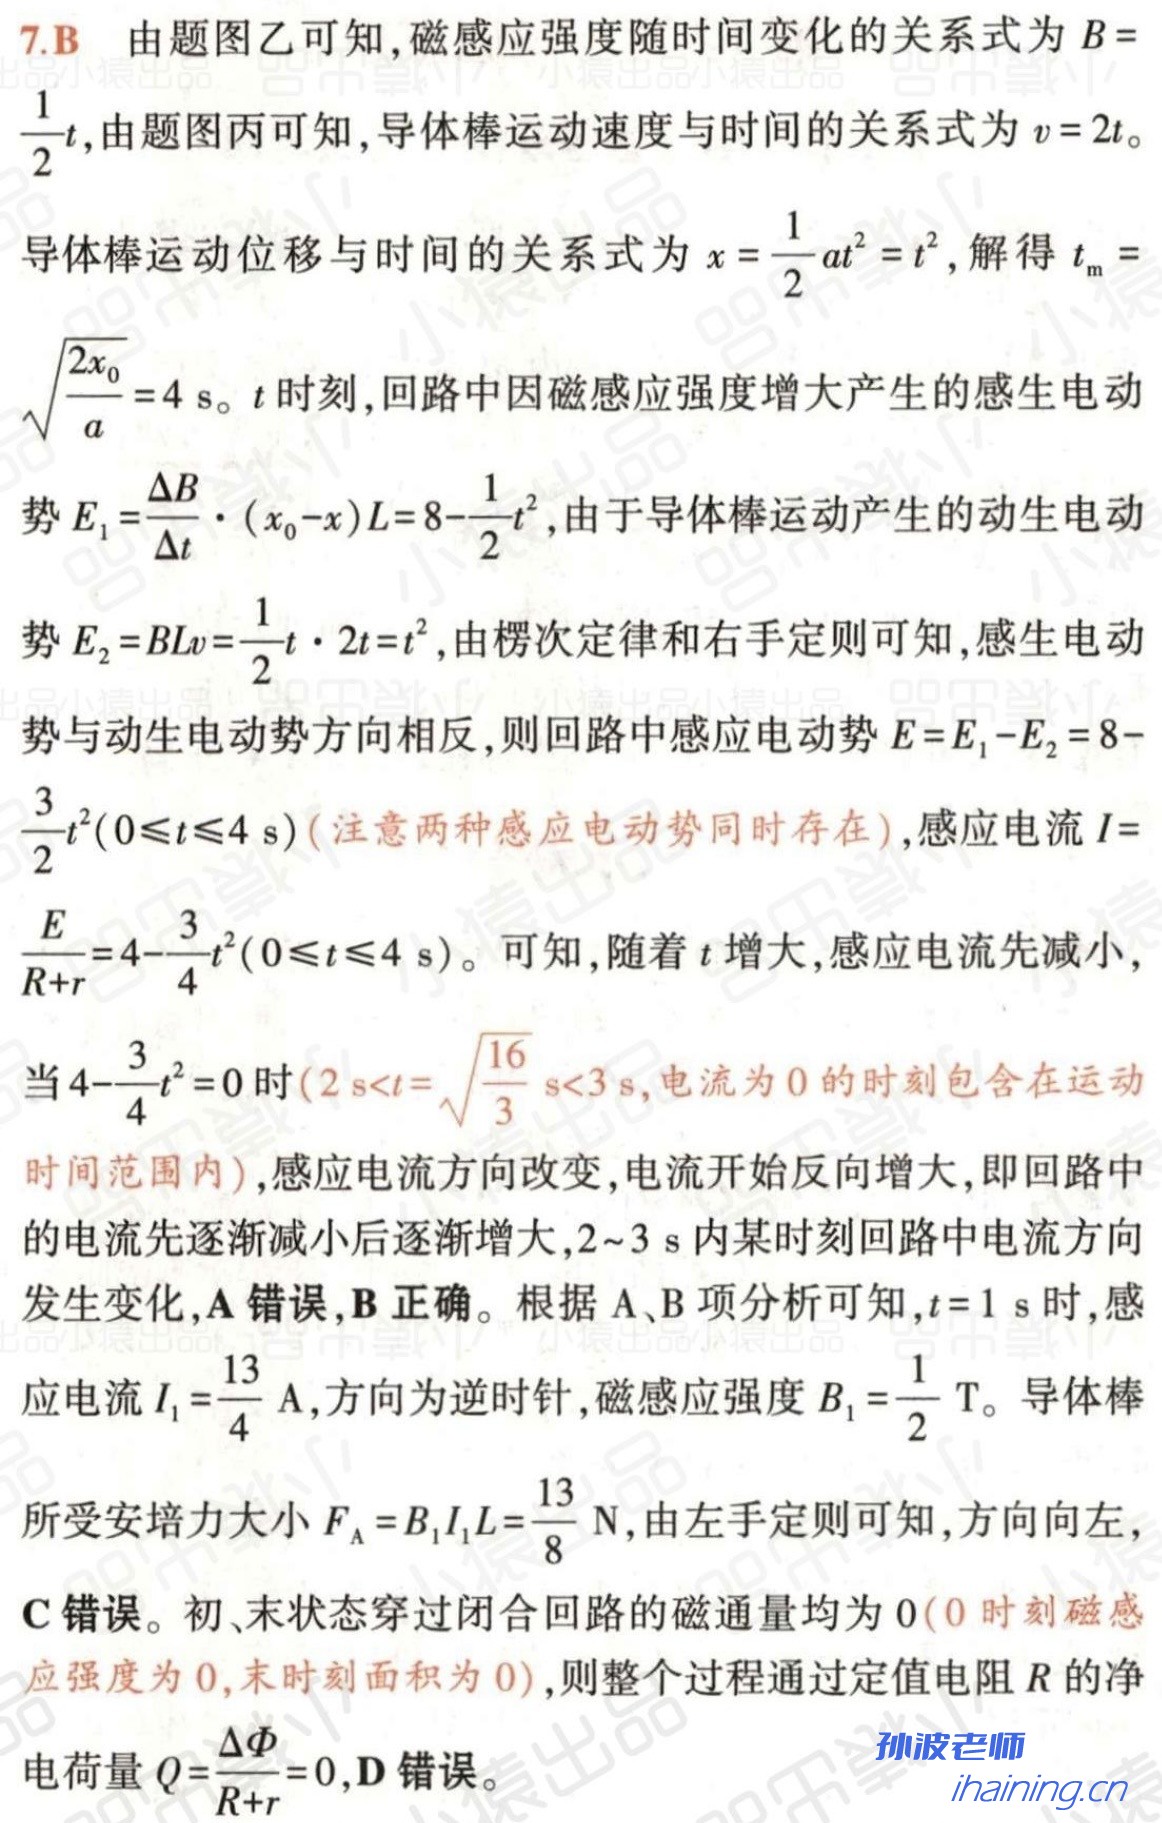 7.B 由题图乙可知,磁感应强度随时间变化的关系式为 B=
1/2 t,由题图丙可知,导体棒运动速度与时间的关系式为 v=2t。
导体棒运动位移与时间的关系式为 x=1/2 at²=t²,解得 tₘ=
√(2x₀/a)=4 s。t 时刻,回路中因磁感应强度增大产生的感生电动
势 E₁=ΔB/Δt·(x₀-x)L=8-1/2 t²,由于导体棒运动产生的动生电动
势 E₂=BLv=1/2 t·2t=t²,由楞次定律和右手定则可知,感生电动
势与动生电动势方向相反,则回路中感应电动势 E=E₁-E₂=8-
3/2 t²(0≤t≤4 s)(注意两种感应电动势同时存在),感应电流 I=
E/(R+r)=4-3/4 t²(0≤t≤4 s)。可知,随着 t 增大,感应电流先减小,
当 4-3/4 t²=0 时(2 s<t=√(16/3) s<3 s,电流为 0 的时刻包含在运动
时间范围内),感应电流方向改变,电流开始反向增大,即回路中
的电流先逐渐减小后逐渐增大,2~3 s 内某时刻回路中电流方向
发生变化,A 错误,B 正确。根据 A、B 项分析可知,t=1 s 时,感
应电流 I₁=13/4 A,方向为逆时针,磁感应强度 B₁=1/2 T。导体棒
所受安培力大小 F_A=B₁I₁L=13/8 N,由左手定则可知,方向向左,
C 错误。初、末状态穿过闭合回路的磁通量均为 0(0 时刻磁感
应强度为 0,末时刻面积为 0),则整个过程通过定值电阻 R 的净
电荷量 Q=ΔΦ/(R+r)=0,D 错误。
孙波老师
ihaining.cn
小猿出品